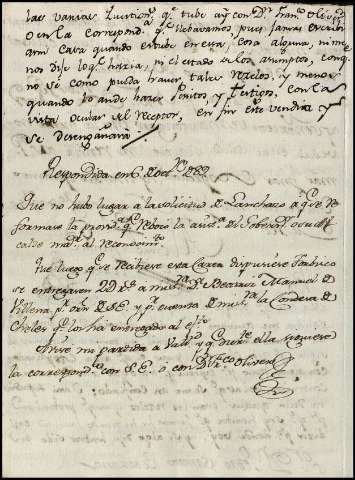 las varias Question.s q.e tube ay con D.n Fran.co Olibero
o en la correspond.a q.e llebavamos, pues jamas escribo
a mi casa quando escribe en esta, cosa alguna, ni me
nos dije lo q.e hacia, ni el estado de los asumptos, con q.e
no sè como pueda haver tales recelos, y menos
quando lo ande hacer Peritos, y testigos, con la
vista ocular del Receptor, en fin este vendra y
se desengañara
Respondida en 6 de oct.re de 82
Que no hubo lugar à la solicitud de Lanchazo a q.e se
formase la
calde ma.r al reconocim.to
Que luego q.e se recibiese esta Carta dispusiese
se entregasen 22 D.s a mi S.ra D.a Beatriz Manuel de
Villena p.r orn de S.E. y p.r cuenta de mi S.ra la Condesa de
Cheles q.e los ha entregado al ef.to
Avise mi partida a Vall.d y q.e durante ella siguiese
la correspond.a con S.E. ò con D. Fr.co Olivero